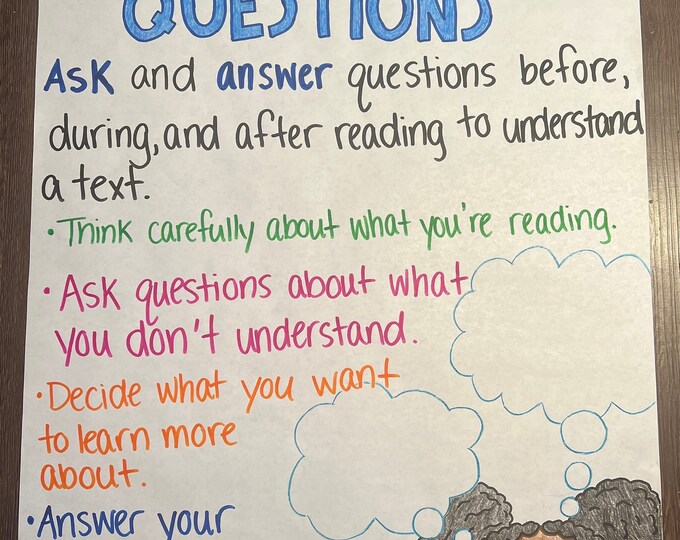 QUESTIONS
Ask and answer questions before,
during, and after reading to understand
a text.
• Think carefully about what you're reading.
• Ask questions about what
you don't understand.
• Decide what you want
to learn more
about.
• Answer your